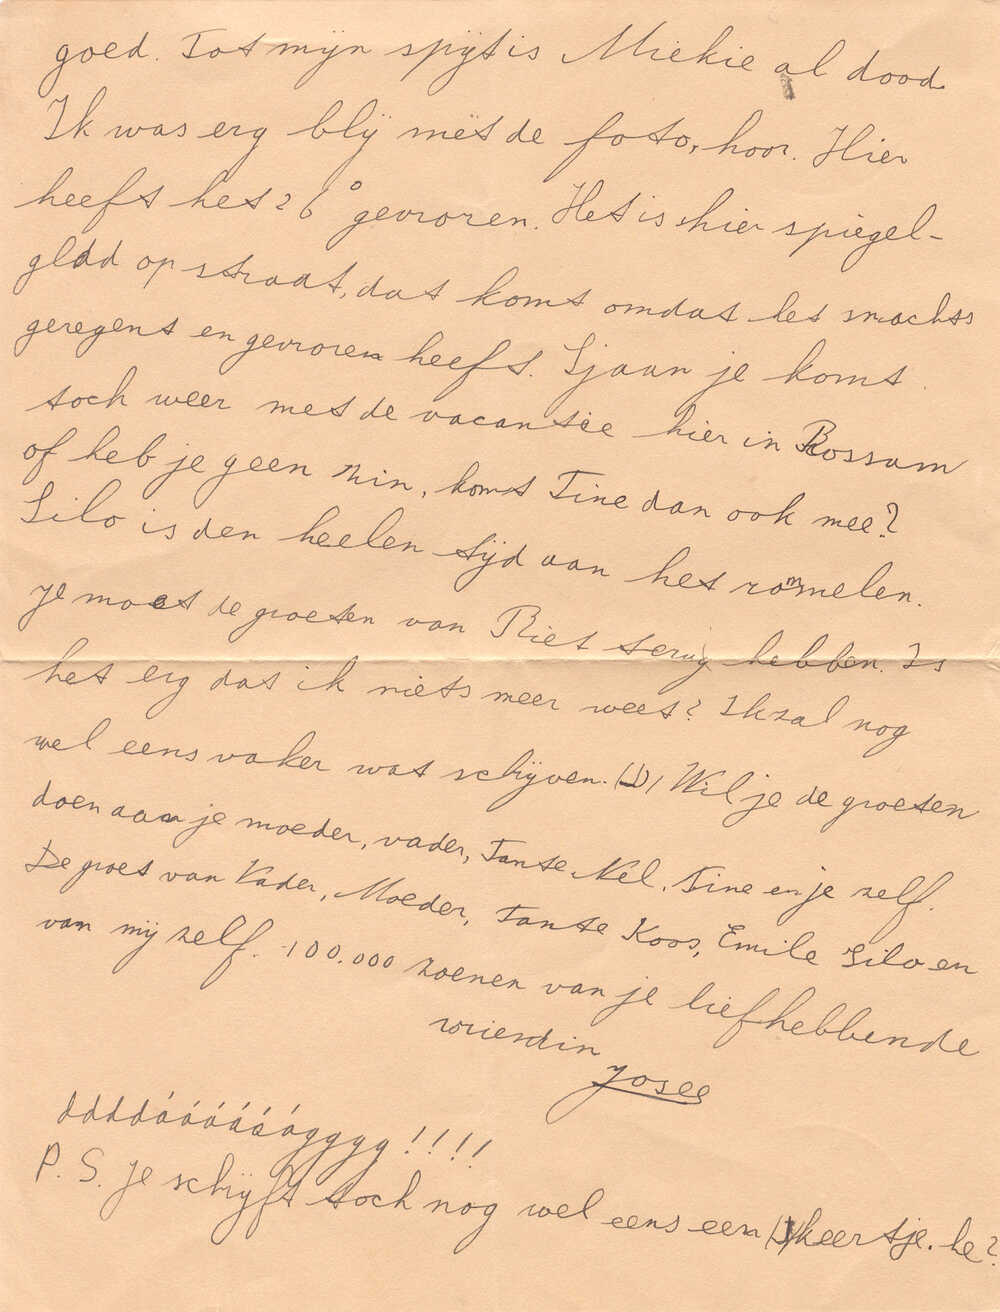 goed. Tot mijn spijt is Miekie al dood.
Ik was erg blij met de foto, hoor. Hier
heeft het 26° gevroren. Het is hier spiegel-
glad op straat, dat komt omdat het snachts
geregent en gevroren heeft. Sjaan je komt
toch weer met de vacantie hier in Rossum
of heb je geen zin, komt Tine dan ook mee?
Silo is den heelen tijd aan het rommelen.
Je moet de groeten van Riet terug hebben. Is
het erg dat ik niets meer weet? Ik zal nog
wel eens vaker wat schijven. Wil je de groeten
doen aan je moeder, vader, Tante Nel, Tine en je zelf.
De groet van Vader, Moeder, Tante Koos, Emile Silo en
van mij zelf. 100.000 zoenen van je liefhebbende
vriendin
Josee
ddddáááááágggg!!!!
P.S. Je schijft toch nog wel eens een keertje. he?